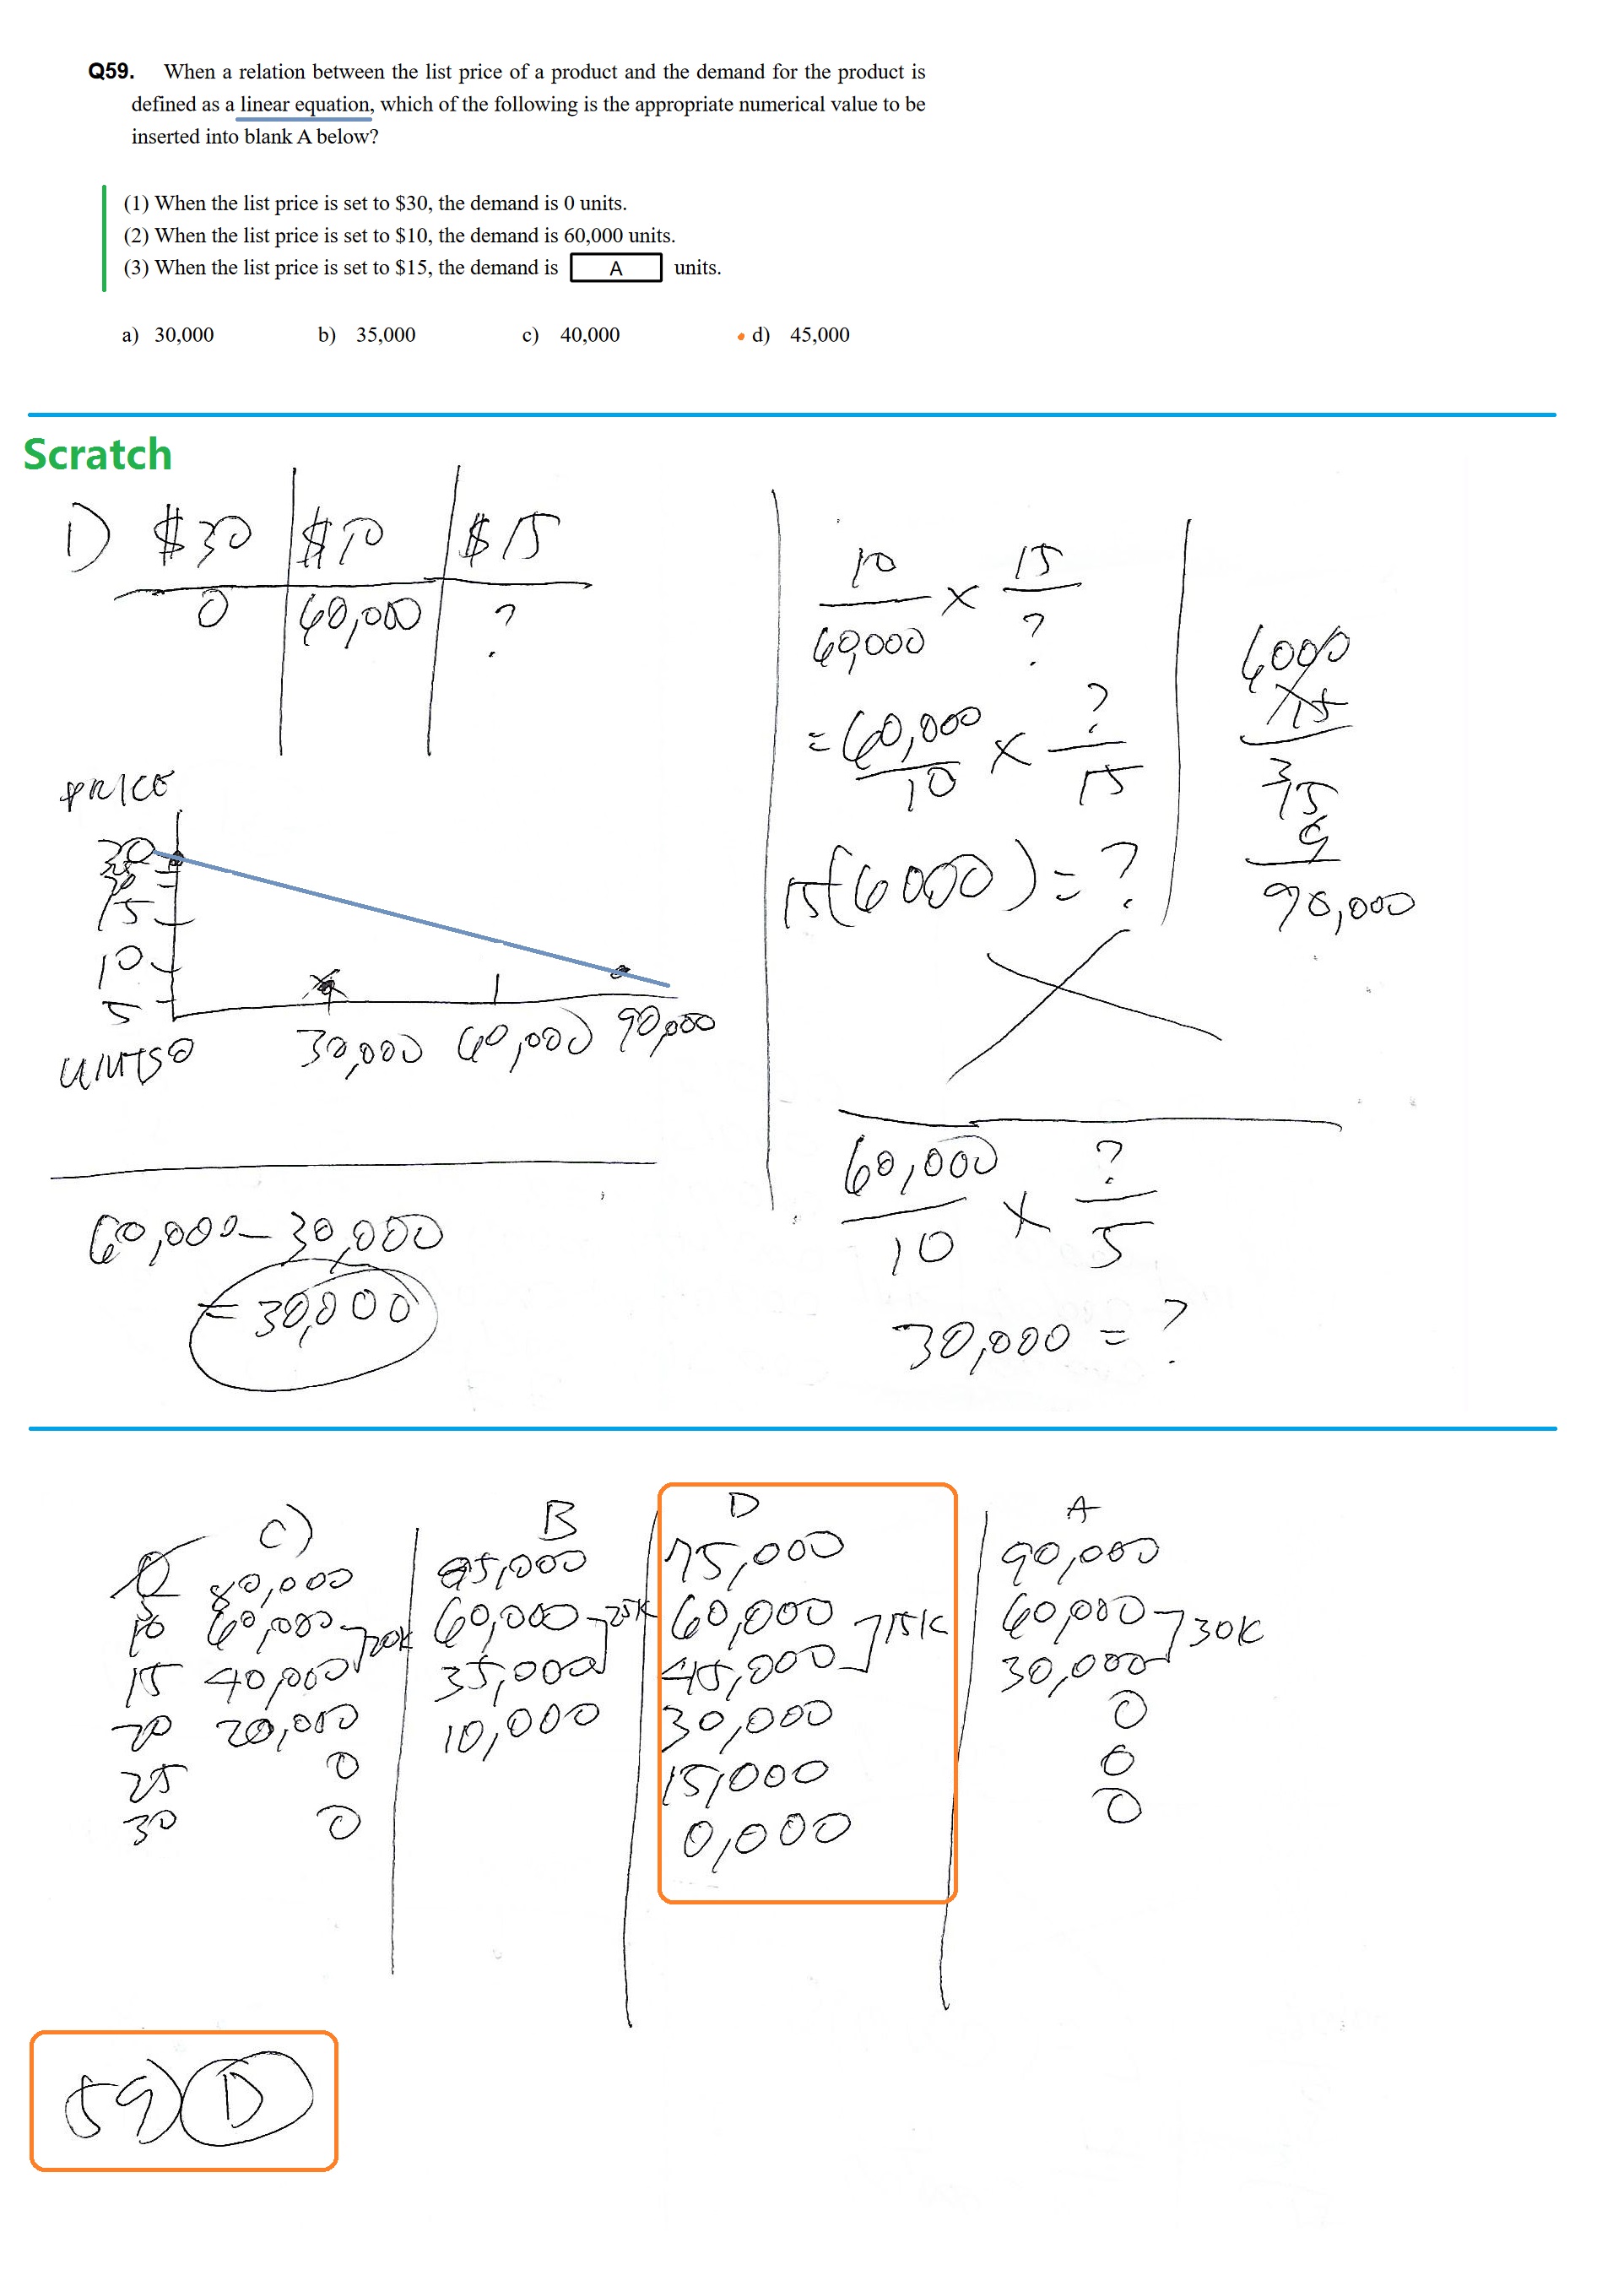 Q59. When a relation between the list price of a product and the demand for the product is
defined as a linear equation, which of the following is the appropriate numerical value to be
inserted into blank A below?
(1) When the list price is set to $30, the demand is 0 units.
(2) When the list price is set to $10, the demand is 60,000 units.
(3) When the list price is set to $15, the demand is A units.
a) 30,000 b) 35,000 c) 40,000 d) 45,000
Scratch
D $30 $10 $15
0 60,000 ?
PRICE
30
15
10
5
UNITS 0 30,000 60,000 90,000
60,000 - 30,000
= 30,000
10 × 15
60,000 ?
= 60,000 × ?
10 15
15(6000) = ?
6000
×15
3
15
6
90,000
60,000 × ?
10 5
30,000 = ?
C)
80,000
10 60,000
20K
15 40,000
20 20,000
25 0
30 0
B
85,000
60,000
25K
35,000
10,000
D
75,000
60,000
15K
45,000
30,000
15,000
0,000
A
90,000
60,000
30K
30,000
0
0
0
59) D